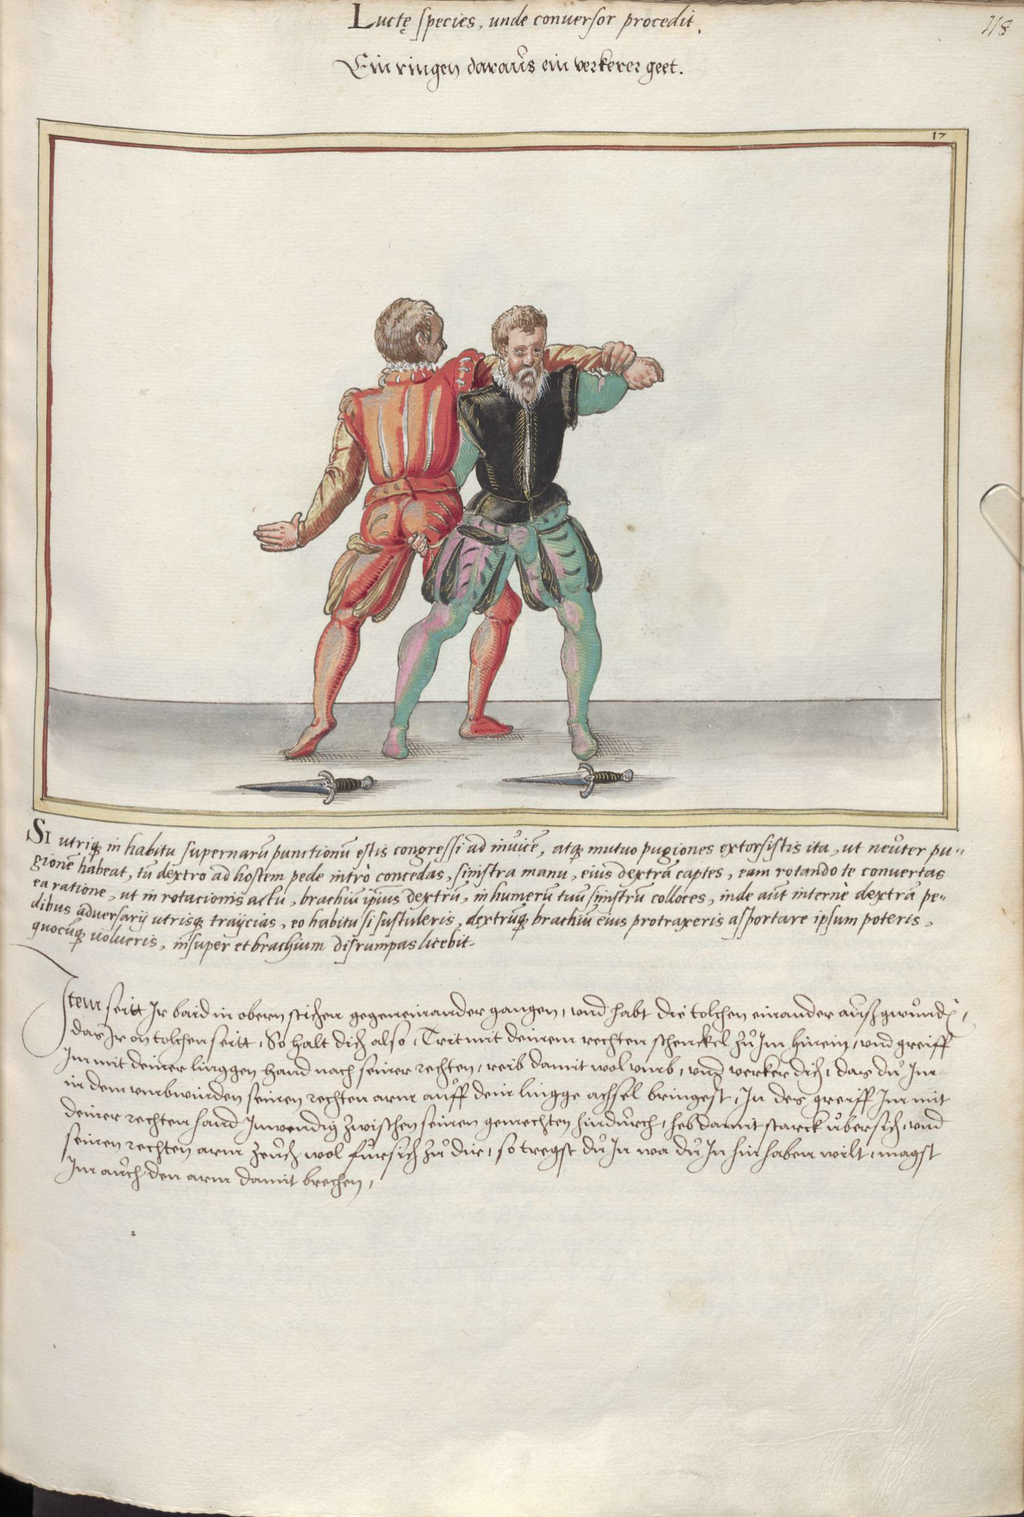 Luctę species, unde conversor procedit.
118
Ein ringen daraus ein verkerer geet.
17
SI utriq; in habitu supernarū punctionū estis congressi ad invicē, atq; mutuo pugiones extorsistis ita, ut neuter pu-
gionē habeat, tū dextro ad hostem pede intro concedas, sinistra manu, eius dextrā captes, eam rotando te convertas
ea ratione, ut in rotacionis actu, brachiū ipsius dextrū, in humerū tuū sinistrū colloces, inde aūt internè dextrā pe-
dibus adversarij utrisq; traijcias, eo habitu si sustuleris, dextrūq; brachiū eius protraxeris asportare ipsum poteris,
quocūq; volueris, insuper et brachium disrumpas licebit.
Item seitt Ir baid in obern stichen gegeneinander gangen, und habt die tolchen einander auszgwundē,
das Ir on tolchen seitt, So halt dich also, Trit mit deinem rechten schenckel zu Im hinein, und greiff
Im mit deiner linggen hand nach seiner rechten, reib damit wol umb, und verker dich, das du Im
in dem umbwinden seinen rechten arm auff dein lingge achsel bringest, In des greiff Im mit
deiner rechten hand Inwendig zwischen seinen gemechten hindurch, heb damit starck ubersich, und
seinen rechten arm zeuch wol fursich zu dir, so tregst du In wa du In hin haben wilt, magst
Im auch den arm damit brechen,